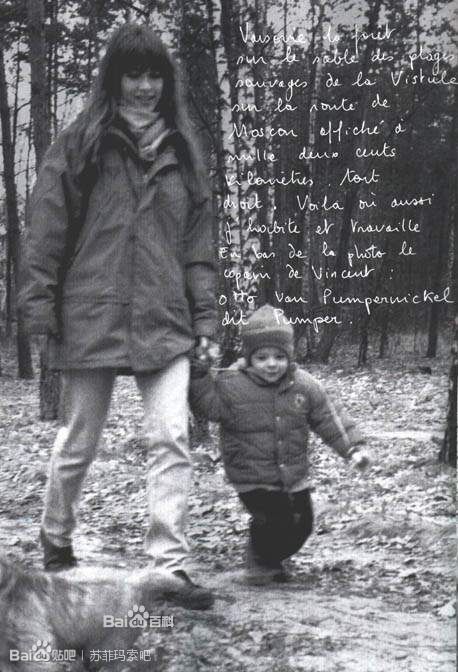 Varsovie la forêt
sur le sable des plages
sauvages de la Vistule
sur la route de
Moscou affiché à
mille deux cents
kilomètres tout
droit. Voilà où aussi
j'habite et travaille
En bas de la photo le
copain de Vincent :
Otto van Pumpernickel
dit Pumper.
Baidu百科
Baidu贴吧 | 苏菲玛索吧